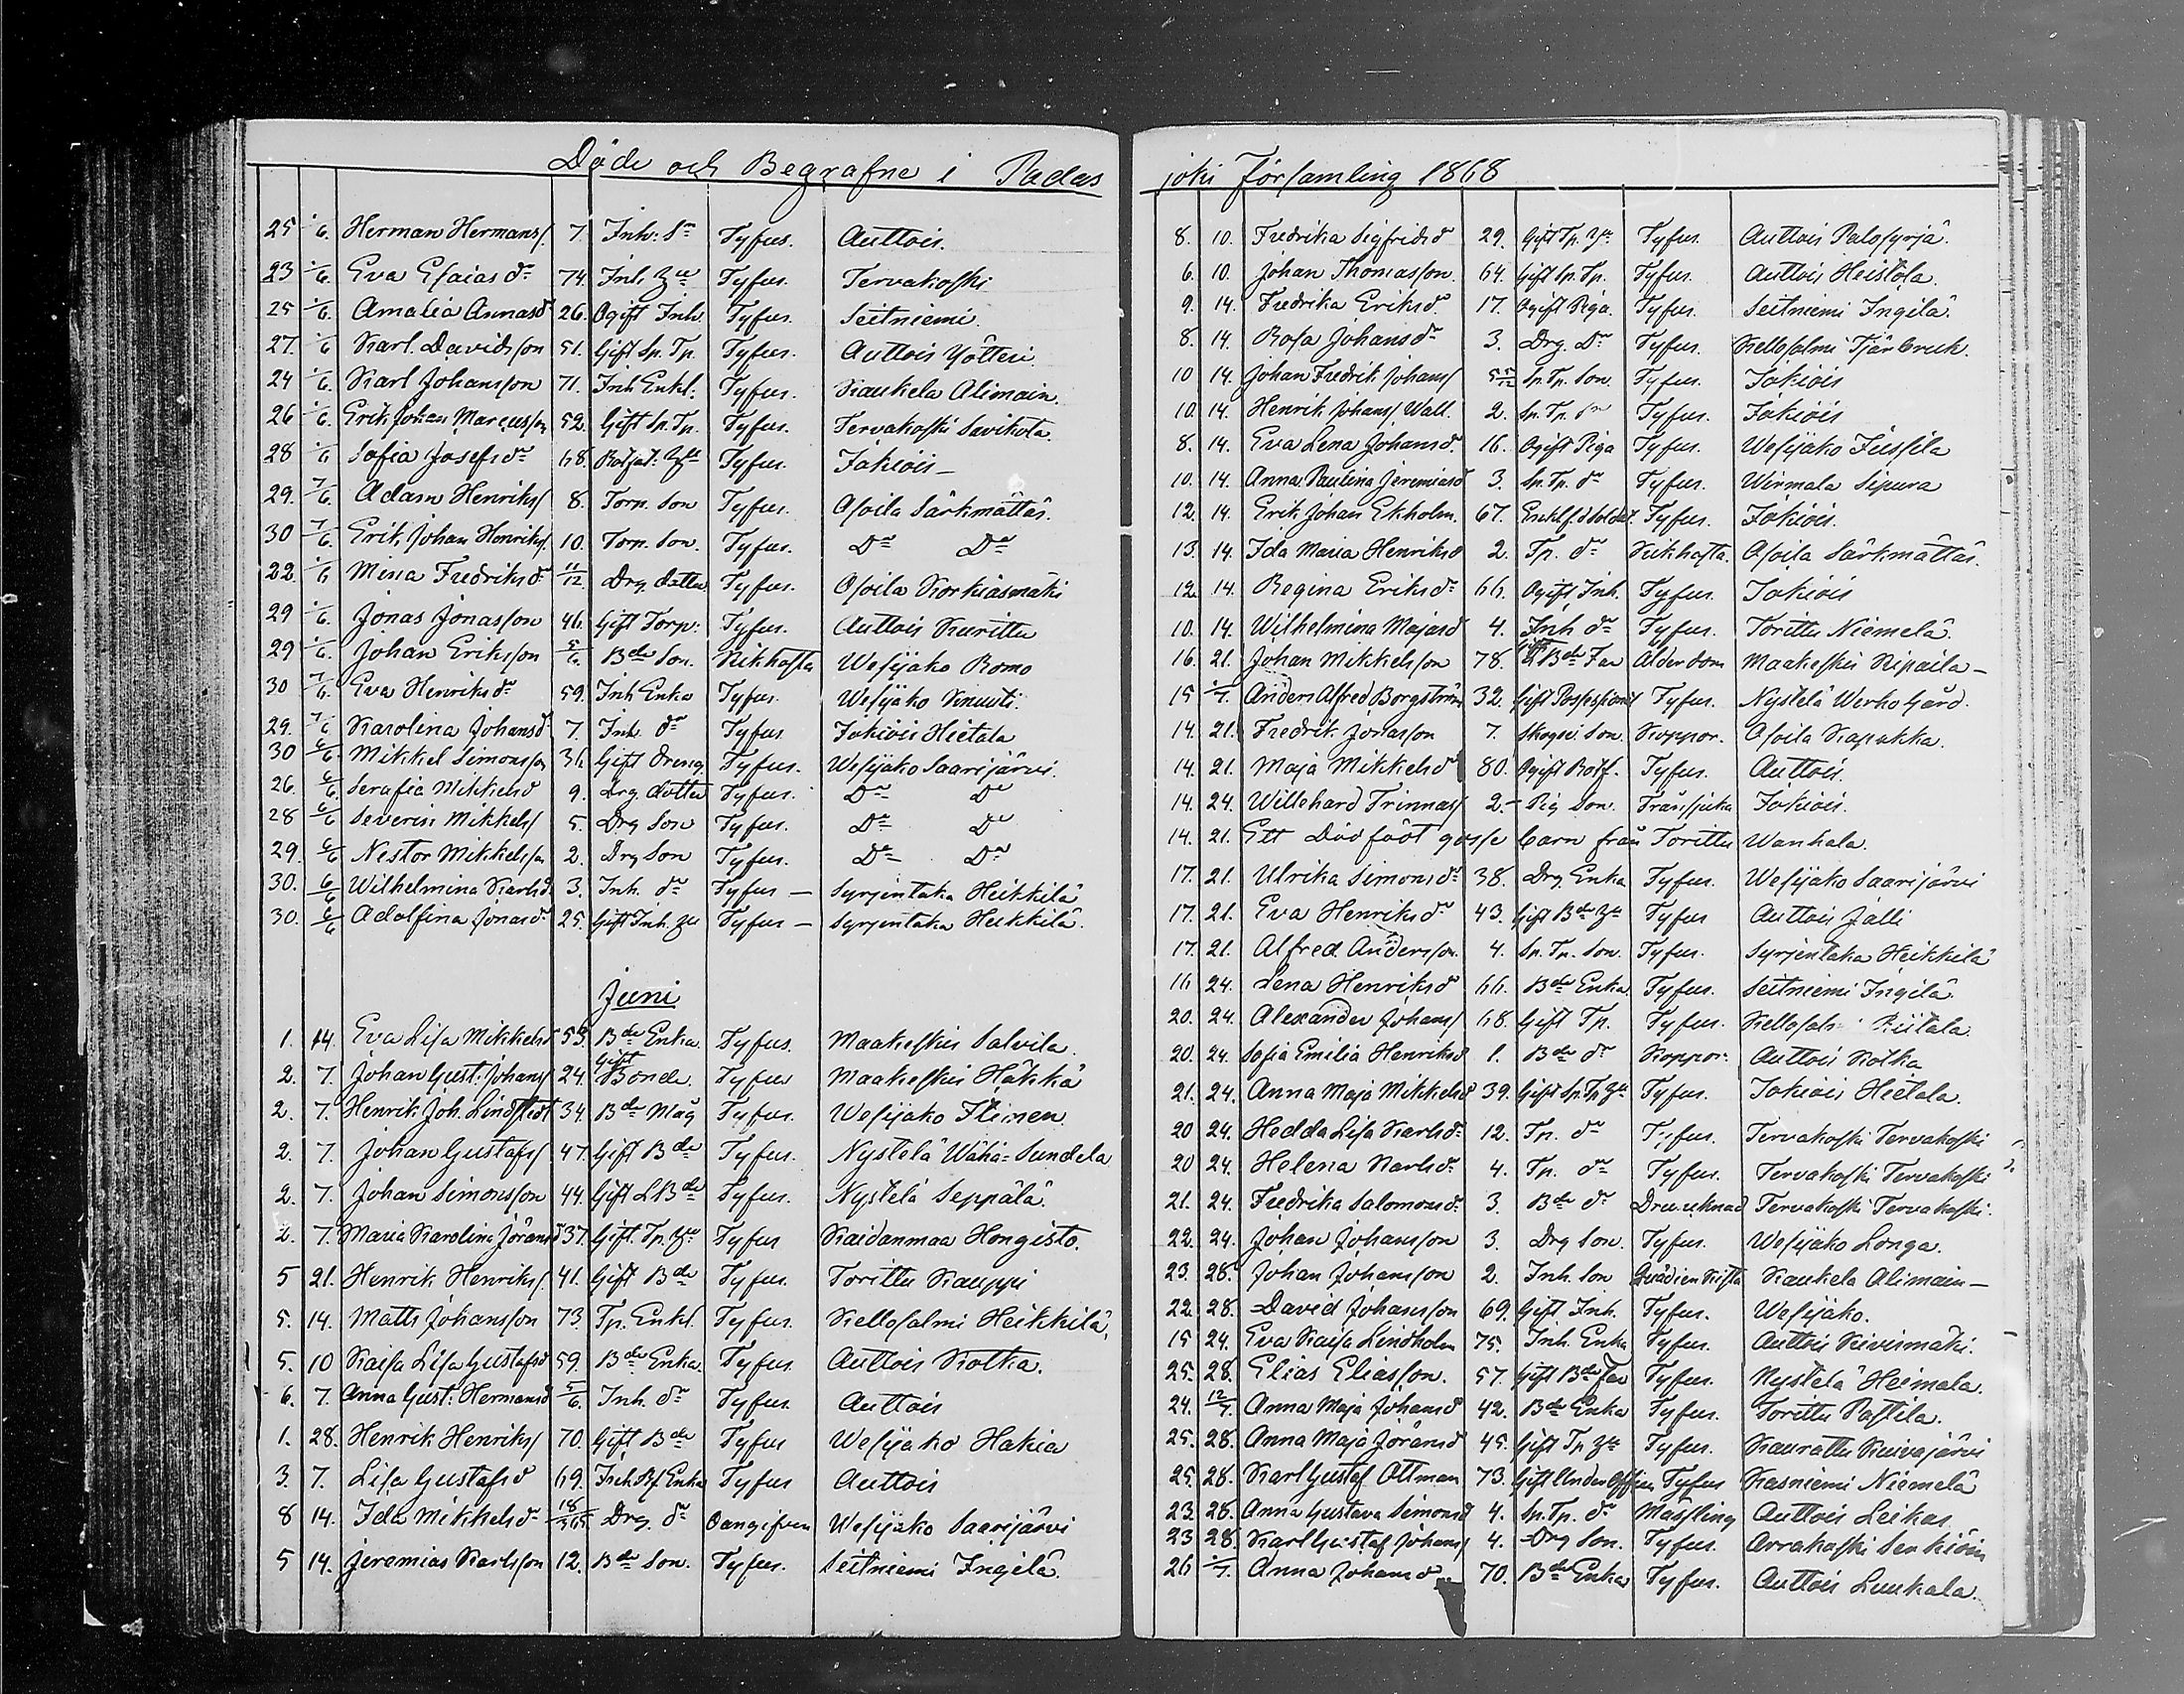 Döde och Begrafne i Padas
25 1/6. Herman Hermans/ 7. Inh: Sn Tyfus. Auttois.
23 1/6. Eva Esaiasdr 74. Inh. Hu Tyfus. Tervakoski
25 1/6. Amalia Annasd 26. Ogift Inh. Tyfus. Seitniemi.
27. 1/6 Karl Davidsson 51. Gift Sp. Tp. Tyfus. Auttois Yötteri
24 1/6. Karl Johansson 71. Inh Enkl. Tyfus. Kaukela Alimain.
26 1/6. Erik Johan Marcusson 52. Gift Sp. Tp. Tyfus. Tervakoski Savikota.
28 1/6 Sofia Josefsdr 68. Tyfus. Jokiois –
29. 7/6. Adam Henriks/ 8. Torp. Son Tyfus. Osoila Särkmättäs.
30 7/6. Erik Johan Henriks/. 10. Torp. Son. Tyfus. Do Do
22. 1/6 Mina Fredriksdr 11/12 Drg. dotter Tyfus. Osoila Korkiasmäki
29 1/6. Jonas Jonasson 46. Gift Torp: Tyfus. Auttois Kurittu
29 1/6. Johan Eriksson 5/6. Bde Son. Kikhosta Wesijako Romo
30 7/6. Eva Henriksdr 59. Inh Enka Tyfus. Wesijako Knuuti.
29. 7/6 Karolina Johansd 7. Inh. dr Tyfus Jokiois Hietala
30 6/6. Mikkel Simonsson 36. Gift Dreng Tyfus. Wesijako Saarijärvi.
26. 6/6. Serafia Mikkelsd 9. Drg. dotter Tyfus. Do Do
28 6/6 Severin Mikkels/ 5. Drg Son Tyfus. Do Do
29. 6/6 Nestor Mikkelsson 2. Drg Son Tyfus. Do Do
30. 6/6 Wilhelmina Karlsd. 3. Inh. dr Tyfus – Syrjentaka Heikkilä
30. 6/6 Adolfina Jonasd 25. Gift Inh. Hu Tyfus – Syrjentaka Heikkilä.
Juni
1. 14. Eva Lisa Mikkelsd 53. Bde Enka. Tyfus. Maakeskis Salvila.
2. 7. Johan Gust: Johans/ 24. Gift Bonde. Tyfus Maakeskis Häkkä
2. 7. Henrik Joh. Lindstedt 34. Bde Måg Tyfus. Wesijako Ilinen
2. 7. Johan Gustafs/ 47. Gift Bde Tyfus. Nystelä Wähä-Sundela
2. 7. Johan Simonsson 44. Gift LBde Tyfus. Nystelä Seppälä.
2. 7. Maria Karolina Jöransd 37. Gift. Tp. Hu Tyfus Kaidanmaa Hongisto.
5 21. Henrik Henriks/. 41. Gift Bde Tyfus. Torittu Kauppi
5. 14. Matts Johansson 73. Tp. Enkl. Tyfus. Kellosalmi Heikkilä,
5. 10 Kaisa Lisa Gustafsd 59. Bde Enka. Tyfus. Auttois Kotka.
6. 7. Anna Gust: Hermansd 5/6. Inh. dr Tyfus Auttois
1. 28. Henrik Henriks/ 70. Gift Bde Tyfus Wesijako Hakia
3. 7. Lisa Gustafsd 69. Enka Tyfus Auttois
8 14. Ida Mikkelsdr 18/365 Drg. dr Oangifven Wesijako Saarijärvi
5 14. Jeremias Karlsson 12. Bde Son. Tyfus. Seitniemi Ingilä.
joki Församling 1868
8. 10. Fredrika Sigfridsd 29. Gift Tp. Hu Tyfus. Auttois Palosyrjä.
6. 10. Johan Thomasson. 64. Gift Sp. Tp. Tyfus. Auttois Heistola.
9. 14. Fredrika Eriksd. 17. Ogift Piga. Tyfus. Seitniemi Ingilä.
8. 14. Rosa Johansdr 3. Drg. Dr Tyfus. Kellosalmi
10 14. Johan Fredrik Johans/ Sp. Tp. Son. Tyfus. Jokiois
10. 14. Henrik Johans/ Wall. 2. Sp. Tp. Sn Tyfus. Jokiois
8. 14. Eva Lena Johansd. 16. Ogift Piga Tyfus. Wesijako Jussila
10. 14. Anna Paulina Jeremiasd 3. Sp. Tp. dr Tyfus. Wirmala Sipura
12. 14. Erik Johan Ekholm. 67. Enkl. f.d Soldat. Tyfus. Jokiois.
13. 14. Ida Maria Henriksd 2. Tp. dr Kikhosta. Osoila Särkmättäs.
12. 14. Regina Eriksdr 66. Ogift Inh. Tyfus. Jokiois
10. 14. Wilhelmina Majasd 4. Inh dr Tyfus. Torittu Niemelä.
16. 21. Johan Mikkelsson 78. Gift LBde Far Ålderdom Maakeskis Kipaila –
15 1/7. Anders Alfred Borgström 32. Gift Possessionat Tyfus. Nystelä Werho Gård.
14. 21. Fredrik Jonasson 7. Skogv. Son. Koppor. Osoila Kapakka.
14. 21. Maja Mikkelsd 80. Ogift Rotf. Tyfus. Auttois.
14. 24. Willehard Trinnas/ 2.– Pig Son. Trånsjuka Jokiois.
14. 21. Ett Död född gosse barn från Torittu Wanhala.
17. 21. Ulrika Simonsdr 38. Drg. Enka Tyfus. Wesijako Saarijärvi
17. 21. Eva Henriksdr 43. Gift Bde Hu Tyfus Auttois Jälli
17. 21. Alfred Andersson. 4. Sp. Tp. Son. Tyfus. Syrjentaka Heikkilä
16 24. Lena Henriksd 66. Bde Enka. Tyfus. Seitniemi Ingilä.
20. 24. Alexander Johans/ 68. Gift Tp. Tyfus.
20. 24. Sofia Emilia Henriksd 1. Bde dr Koppor: Auttois Kotka
21. 24. Anna Maja Mikkelsd 39. Gift Sp. Tp Hu Tyfus. Jokiois Hietala.
20 24. Hedda Lisa Karlsdr 12. Tp. dr Tyfus. Tervakoski Tervakoski
20 24. Helena Karlsdr 4. Tp. dr Tyfus. Tervakoski Tervakoski
21. 24. Fredrika Salomonsdr 3. Bde dr Drunknad Tervakoski Tervakoski.
22. 24. Johan Johansson 3. Drg Son. Tyfus. Wesijako Longa.
23. 28. Johan Johansson 2. Inh. Son Kaukela Alimain –
22. 28. David Johansson 69. Gift Inh. Tyfus. Wesijako.
15 24. Eva Kaisa Lindholm 75. Inh. Enka Tyfus. Auttois Kivismäki.
25. 28. Elias Eliasson. 57. Gift Bde Far Tyfus. Nystelä Heimala.
24. 12/7. Anna Maja Johansd 42. Bde Enka Tyfus. Torittu Pastila.
25. 28. Anna Maja Jöransd 45. Gift Tp Hu Tyfus. Kaurattu Kuivajärvi
25. 28. Karl Gustaf Ottman 73. Gift Underofficer Tyfus Kasniemi Niemelä
23 28. Anna Gustava Simonsd 4. Sp. Tp. dr Mässling Auttois Leikas.
23 28. Karl Gustaf Johans/ 4. Drg Son. Tyfus. Arrakoski
26 1/7. Anna Johansd. 70. Bde Enka Tyfus. Auttois Luukala.